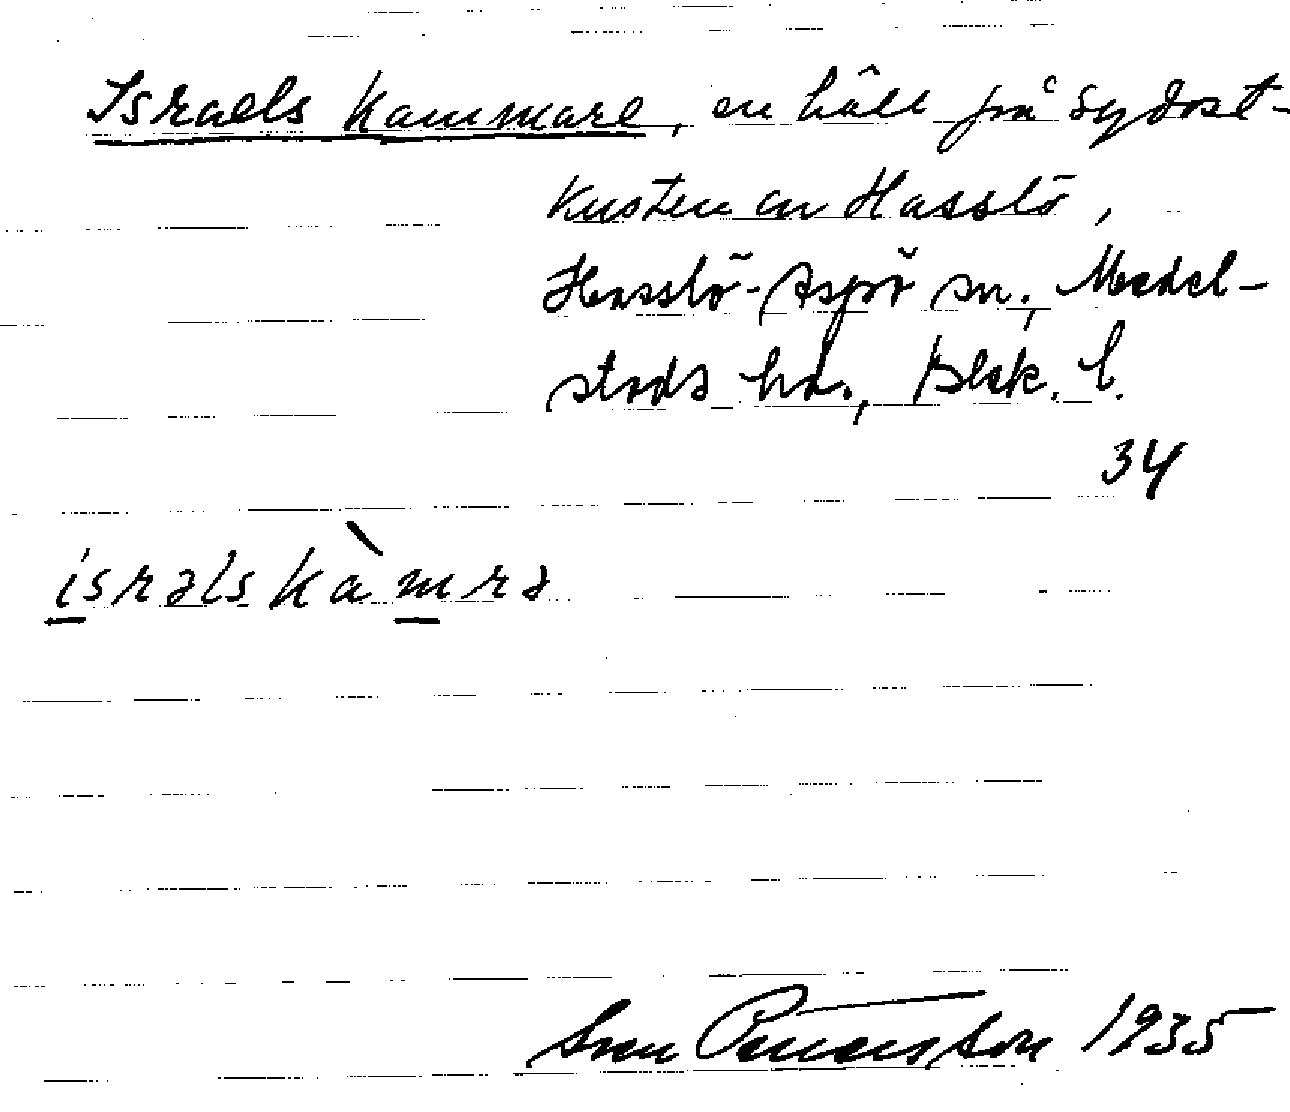 Israels Kammare, en häll på sydost-
kusten av Hasslö,
Hasslö-Aspö sn., Medel-
stads hd., Blek. l.
34
isrəls kàmrə
Sven 1935